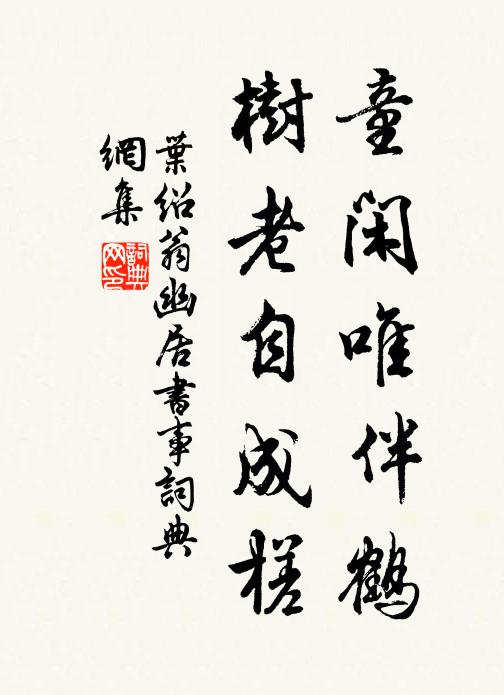 童闲唯伴鶴
樹老自成槎
葉紹翁幽居書事詞典
網集
詞典網印